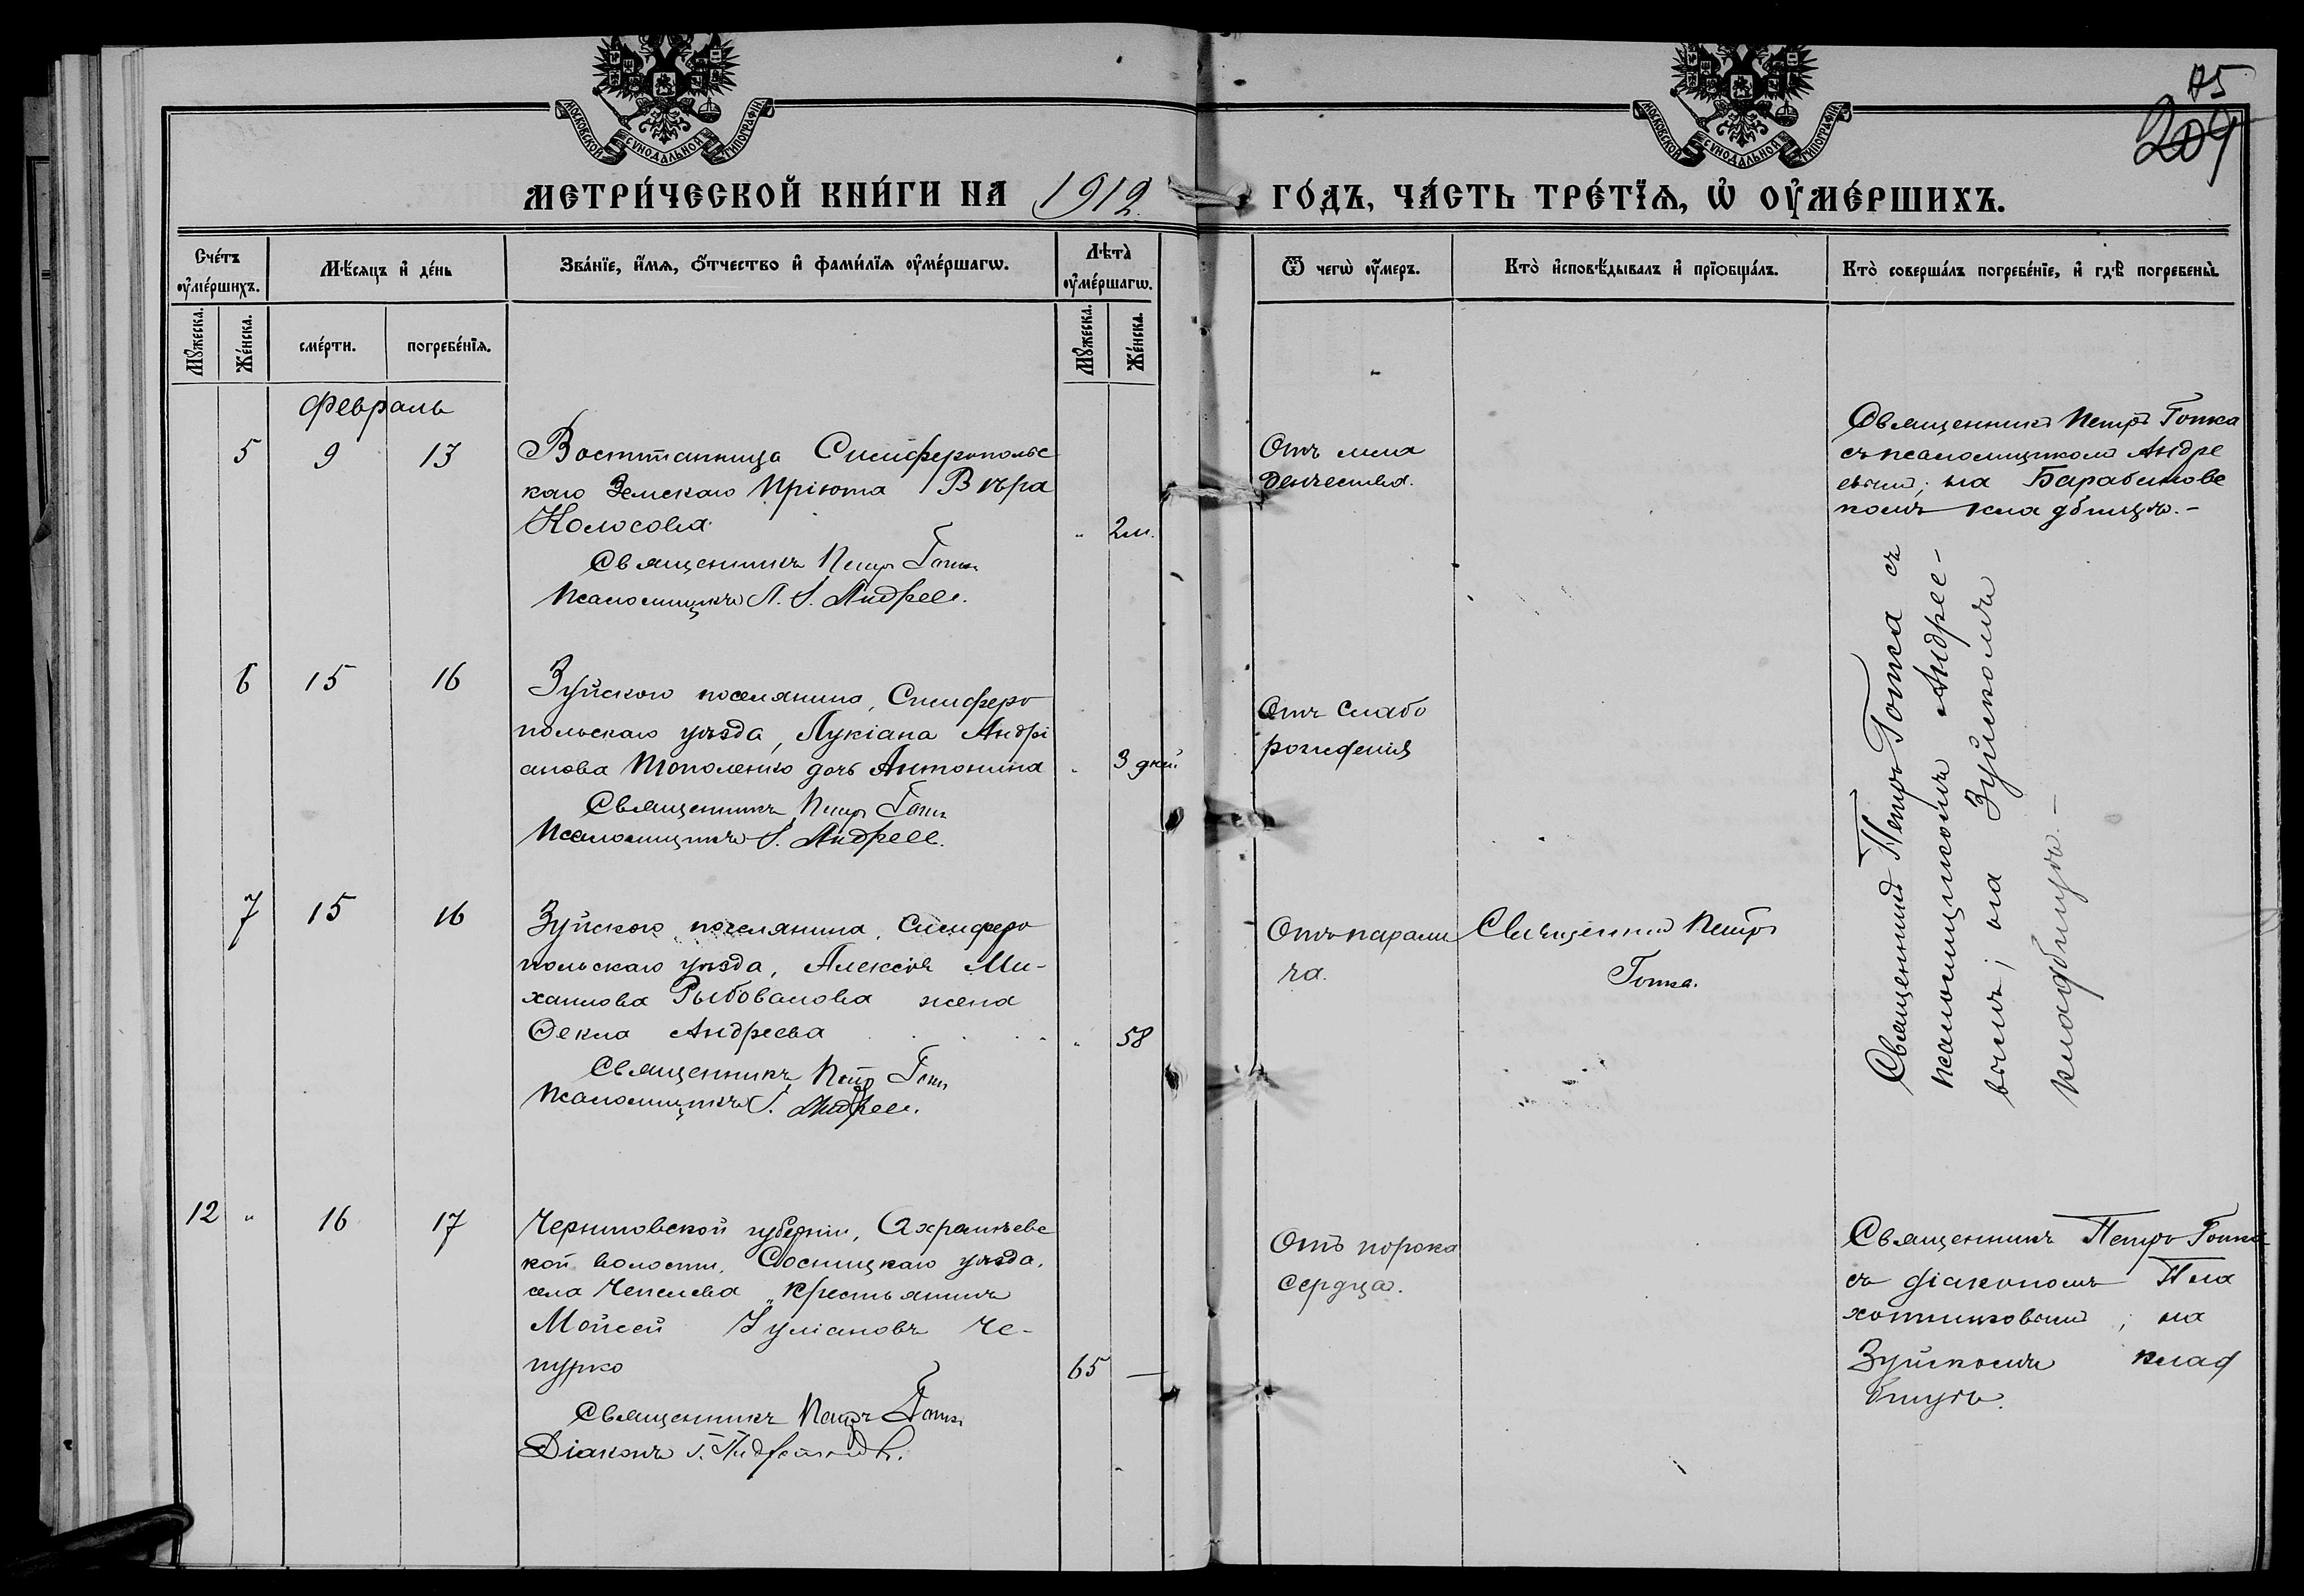 75
209
МОСКОВСКОЙ СѴНОДАЛЬНОЙ ТИПОГРАФІИ
МОСКОВСКОЙ СѴНОДАЛЬНОЙ ТИПОГРАФІИ
МЕТРИ́ЧЕСКОЙ КНИ́ГИ НА 1912 ГО́ДЪ, ЧА́СТЬ ТРЕ́ТЇѦ, Ѡ҆ ОУ҆МЕ́РШИХЪ.
Сче́тъ оу҆ме́ршихъ.
Мѣ́сѧцъ и҆ де́нь
Зва́нїе, и҆́мѧ, ѻ҆́тчество и҆ фами́лїѧ оу҆ме́ршагѡ.
Лѣ́та оу҆ме́ршагѡ.
Ѿ чегѡ̀ оу҆́меръ.
Кто̀ и҆сповѣ́дывалъ и҆ прїѻбща́лъ.
Кто̀ соверша́лъ погребе́нїе, и҆ гдѣ̀ погребены̀.
Мꙋ́жеска.
Же́нска.
сме́рти.
погребе́нїѧ.
Мꙋ́жеска.
Же́нска.
Февраль
5 9 13
Воспитанница Симферопольс
каго Земскаго Пріюта Вѣра
Колосова
" 2 м.
Священникъ Петръ Гопка
Псаломщикъ Андреев
Отъ мла
денчества.
Священникъ Петръ Гопка
съ псаломщикомъ Андре
евымъ; на Барабановс
комъ кладбищѣ.-
6 15 16
Зуйского поселянина, Симферо
польскаго уѣзда, Лукіана Андрі
анова Тополенко дочь Антонина
" 3 дней
Священникъ Петръ Гопка
Псаломщикъ Андреев.
Отъ слабо
рожденія
Священникъ Петръ Гопка съ
псаломщикомъ Андрее-
вымъ; на Зуйскомъ
кладбищѣ.-
7 15 16
Зуйского поселянина, Симферо
польскаго уѣзда, Алексія Ми-
хаилова Рыбовалова жена
Ѳекла Андреева
" 58
Священникъ Петръ Гопка
Псаломщикъ Андреев.
Отъ парали
ча.
Священникъ Петръ
Гопка.
12 " 16 17
Черниговской губерніи,
кой волости, Сосницкаго уѣзда,
села крестьянинъ
Моисей Іуліановъ Че-
пурко
65 —
Священникъ Петръ Гопка
Діаконъ
Отъ порока
сердца.
Священникъ Петръ Гопка
съ діакономъ Пла
хотниковымъ; на
Зуйскомъ клад
бищѣ.